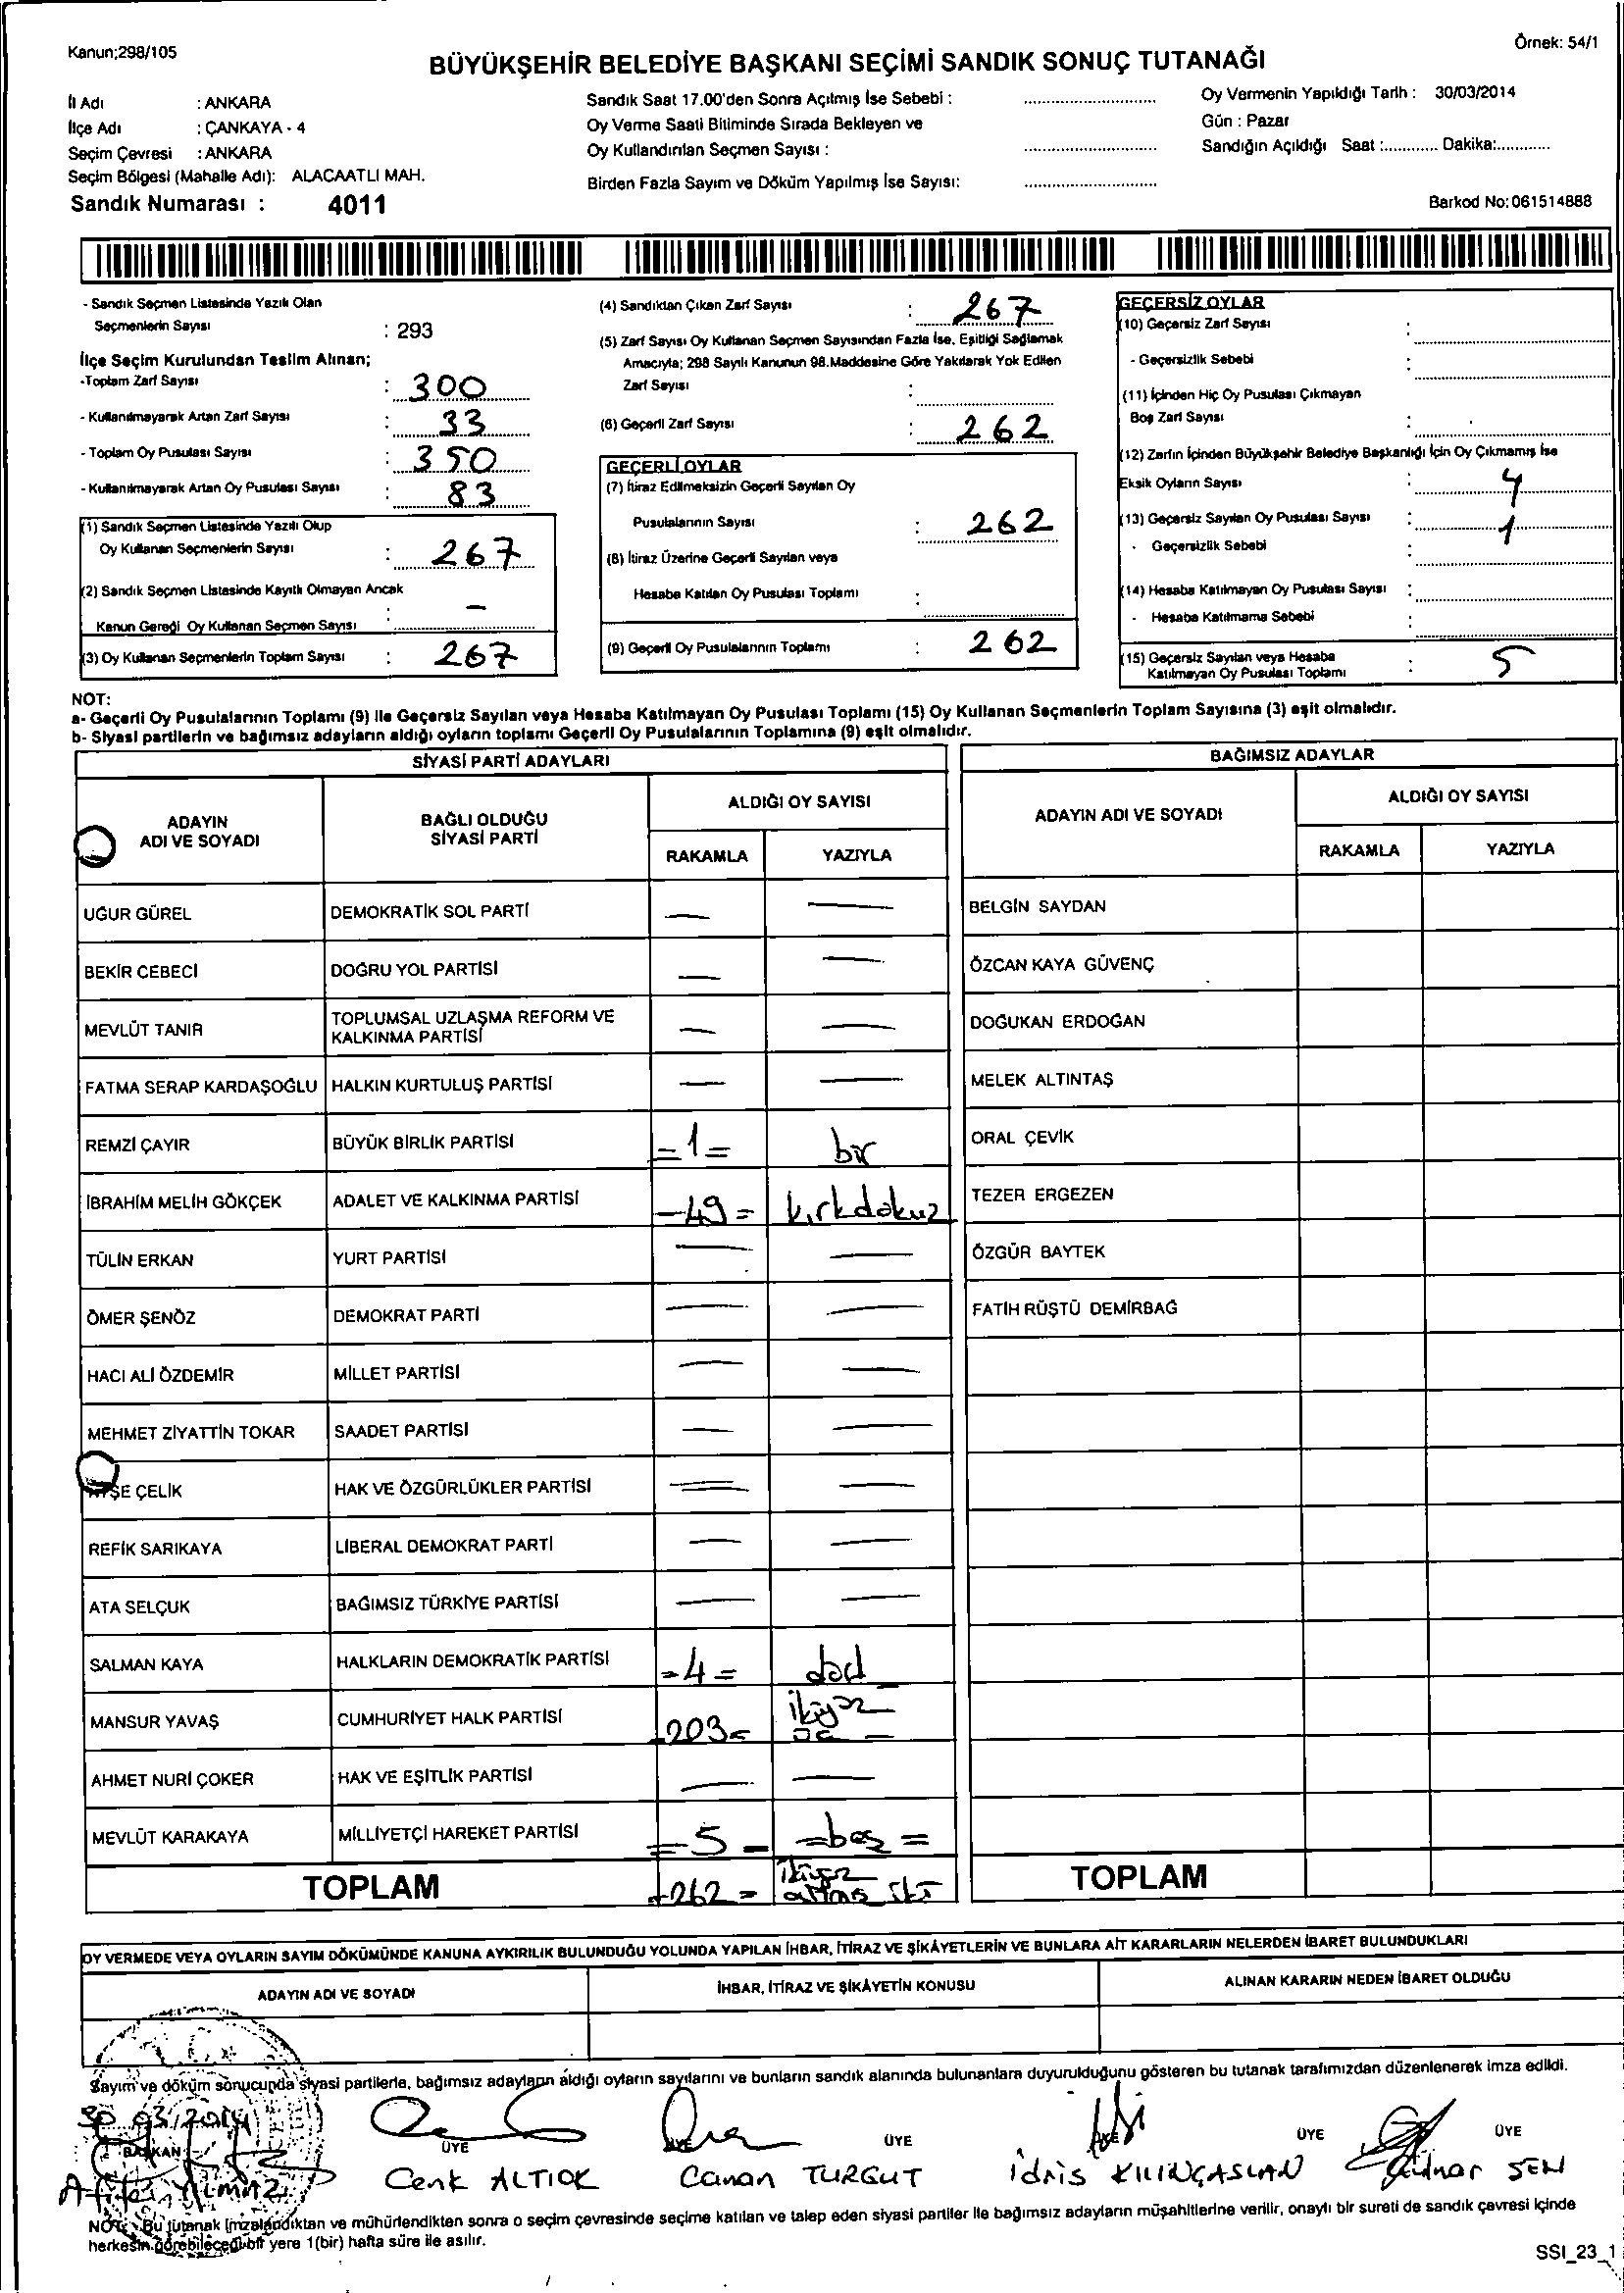 Kanun;298/105
Örnek: 54/1
BÜYÜKŞEHİR BELEDİYE BAŞKANI SEÇİMİ SANDIK SONUÇ TUTANAĞI
İl Adı : ANKARA
İlçe Adı : ÇANKAYA - 4
Seçim Çevresi : ANKARA
Seçim Bölgesi (Mahalle Adı): ALACAATLI MAH.
Sandık Numarası : 4011
Sandık Saat 17.00'den Sonra Açılmış İse Sebebi :
Oy Verme Saati Bitiminde Sırada Bekleyen ve
Oy Kullandırılan Seçmen Sayısı :
Birden Fazla Sayım ve Döküm Yapılmış İse Sayısı:
Oy Vermenin Yapıldığı Tarih : 30/03/2014
Gün : Pazar
Sandığın Açıldığı Saat :............ Dakika:............
Barkod No:061514888
- Sandık Seçmen Listesinde Yazılı Olan
Seçmenlerin Sayısı : 293
İlçe Seçim Kurulundan Teslim Alınan;
-Toplam Zarf Sayısı : 300
- Kullanılmayarak Artan Zarf Sayısı : 33
- Toplam Oy Pusulası Sayısı : 350
- Kullanılmayarak Artan Oy Pusulası Sayısı : 83
(1) Sandık Seçmen Listesinde Yazılı Olup
Oy Kullanan Seçmenlerin Sayısı : 267
(2) Sandık Seçmen Listesinde Kayıtlı Olmayan Ancak
Kanun Gereği Oy Kullanan Seçmen Sayısı : -
(3) Oy Kullanan Seçmenlerin Toplam Sayısı : 267
(4) Sandıktan Çıkan Zarf Sayısı : 267
(5) Zarf Sayısı Oy Kullanan Seçmen Sayısından Fazla İse, Eşitliği Sağlamak
Amacıyla; 298 Sayılı Kanunun 98.Maddesine Göre Yakılarak Yok Edilen
Zarf Sayısı :
(6) Geçerli Zarf Sayısı : 262
GEÇERLİ OYLAR
(7) İtiraz Edilmeksizin Geçerli Sayılan Oy
Pusulalarının Sayısı : 262
(8) İtiraz Üzerine Geçerli Sayılan veya
Hesaba Katılan Oy Pusulası Toplamı :
(9) Geçerli Oy Pusulalarının Toplamı : 262
GEÇERSİZ OYLAR
(10) Geçersiz Zarf Sayısı :
- Geçersizlik Sebebi :
(11) İçinden Hiç Oy Pusulası Çıkmayan
Boş Zarf Sayısı :
(12) Zarfın İçinden Büyükşehir Belediye Başkanlığı İçin Oy Çıkmamış İse
Eksik Oyların Sayısı : 4
(13) Geçersiz Sayılan Oy Pusulası Sayısı : 1
- Geçersizlik Sebebi :
(14) Hesaba Katılmayan Oy Pusulası Sayısı :
- Hesaba Katılmama Sebebi :
(15) Geçersiz Sayılan veya Hesaba
Katılmayan Oy Pusulası Toplamı : 5
NOT:
a- Geçerli Oy Pusulalarının Toplamı (9) ile Geçersiz Sayılan veya Hesaba Katılmayan Oy Pusulası Toplamı (15) Oy Kullanan Seçmenlerin Toplam Sayısına (3) eşit olmalıdır.
b- Siyasi partilerin ve bağımsız adayların aldığı oyların toplamı Geçerli Oy Pusulalarının Toplamına (9) eşit olmalıdır.
SİYASİ PARTİ ADAYLARI
ADAYIN ADI VE SOYADI
BAĞLI OLDUĞU SİYASİ PARTİ
ALDIĞI OY SAYISI
RAKAMLA YAZIYLA
UĞUR GÜREL DEMOKRATİK SOL PARTİ — —
BEKİR CEBECİ DOĞRU YOL PARTİSİ — —
MEVLÜT TANIR TOPLUMSAL UZLAŞMA REFORM VE KALKINMA PARTİSİ — —
FATMA SERAP KARDAŞOĞLU HALKIN KURTULUŞ PARTİSİ — —
REMZİ ÇAYIR BÜYÜK BİRLİK PARTİSİ =1= bir
İBRAHİM MELİH GÖKÇEK ADALET VE KALKINMA PARTİSİ -49= kırkdokuz
TÜLİN ERKAN YURT PARTİSİ — —
ÖMER ŞENÖZ DEMOKRAT PARTİ — —
HACI ALİ ÖZDEMİR MİLLET PARTİSİ — —
MEHMET ZİYATTİN TOKAR SAADET PARTİSİ — —
AYŞE ÇELİK HAK VE ÖZGÜRLÜKLER PARTİSİ — —
REFİK SARIKAYA LİBERAL DEMOKRAT PARTİ — —
ATA SELÇUK BAĞIMSIZ TÜRKİYE PARTİSİ — —
SALMAN KAYA HALKLARIN DEMOKRATİK PARTİSİ =4= dört
MANSUR YAVAŞ CUMHURİYET HALK PARTİSİ -203= ikiyüz üç -
AHMET NURİ ÇOKER HAK VE EŞİTLİK PARTİSİ — —
MEVLÜT KARAKAYA MİLLİYETÇİ HAREKET PARTİSİ =5- =beş=
TOPLAM =262= ikiyüz altmış iki
BAĞIMSIZ ADAYLAR
ADAYIN ADI VE SOYADI
ALDIĞI OY SAYISI
RAKAMLA YAZIYLA
BELGİN SAYDAN
ÖZCAN KAYA GÜVENÇ
DOĞUKAN ERDOĞAN
MELEK ALTINTAŞ
ORAL ÇEVİK
TEZER ERGEZEN
ÖZGÜR BAYTEK
FATİH RÜŞTÜ DEMİRBAĞ
TOPLAM
OY VERMEDE VEYA OYLARIN SAYIM DÖKÜMÜNDE KANUNA AYKIRILIK BULUNDUĞU YOLUNDA YAPILAN İHBAR, İTİRAZ VE ŞİKÂYETLERİN VE BUNLARA AİT KARARLARIN NELERDEN İBARET BULUNDUKLARI
ADAYIN ADI VE SOYADI İHBAR, İTİRAZ VE ŞİKÂYETİN KONUSU ALINAN KARARIN NEDEN İBARET OLDUĞU
Sayım ve döküm sonucunda siyasi partilerle, bağımsız adayların aldığı oyların sayılarını ve bunların sandık alanında bulunanlara duyurulduğunu gösteren bu tutanak tarafımızdan düzenlenerek imza edildi.
30.03/2014
BAŞKAN ÜYE ÜYE ÜYE ÜYE ÜYE ÜYE
YILMAZ Cenk ALTIOK Canan TURGUT idris KILINÇASLAN ŞEN
NOT: Bu tutanak imzalandıktan ve mühürlendikten sonra o seçim çevresinde seçime katılan ve talep eden siyasi partiler ile bağımsız adayların müşahitlerine verilir, onaylı bir sureti de sandık çevresi içinde
herkesin görebileceği bir yere 1(bir) hafta süre ile asılır.
SSI_23_1